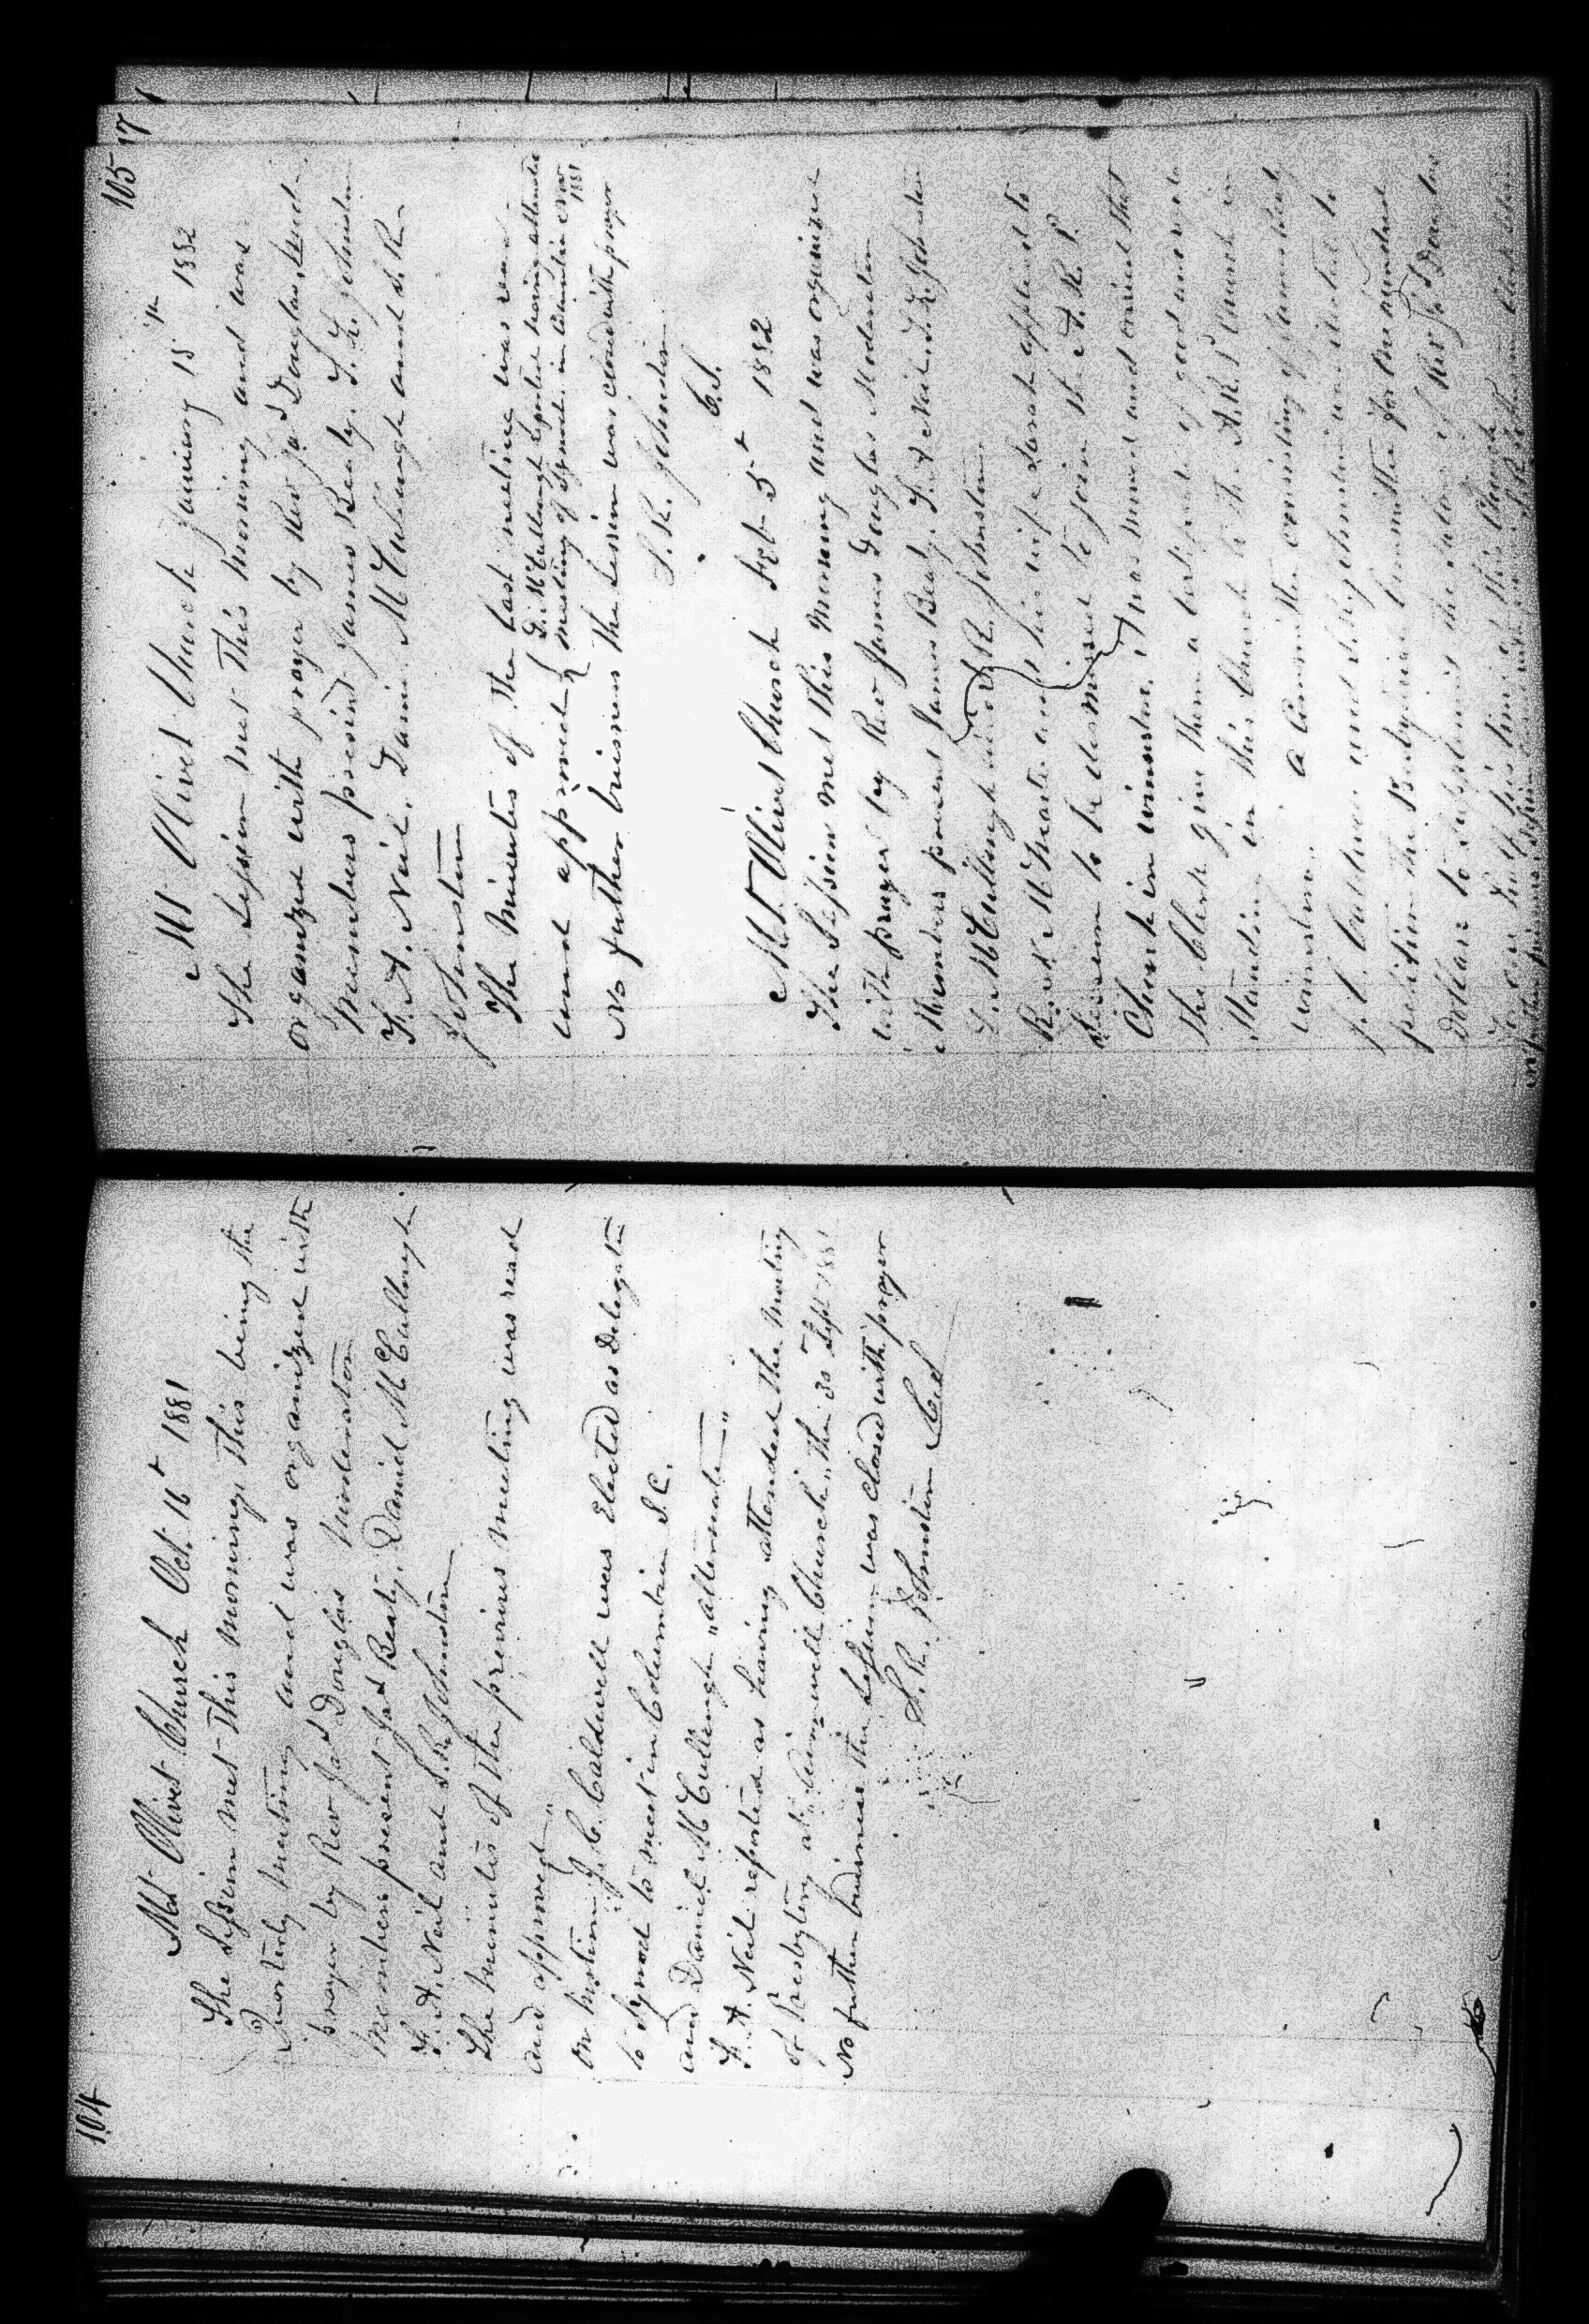 104
Mt Olivet Church Oct. 16th 1881
The Session met this morning, this being the
Quarterly meeting and was organized with
prayer by Rev Jas Douglas Moderator
Members present Jas Beaty, Daniel McCullough
F. A. Neil and S. R. Johnston
The minutes of the previous meeting was read
and approved "
On motion J. C. Caldwell was Elected as Delegate
to Synod to meet in Columbia S. C.
and Daniel McCullough "alternate"
F. A. Neil reported as having attended the Meeting
of Presbytery at Church "the 30th Sept 1881
No further business the Session was closed with prayer
S. R. Johnston Clk
105
17
Mt Olivet Church January 15th 1882
The Session met this morning and was
organized with prayer by Rev Jas Douglas Mod.
Members present James Beaty, J. K. Johnston
F. A. Neil, Daniel McCullough and S. R.
Johnston
The Minutes of the last meeting was read
and approved { D. McCullough reported having attended
meeting of Synod in Columbia Nov 1881
No further business the Session was closed with prayer
S. R. Johnston
C. S.
Mt Olivet Church Feb 5th 1882
The Session met this Morning and was organized
with prayer by Rev James Douglas Moderator
Members present James Beaty, F. A. Neil, J. K. Johnston
D. McCullough and S. R. Johnston
R. & his wife Sarah applied to
Session to be dismissed to join the A. R. P.
Church in Winnsboro. It was moved and carried that
the Clerk give them a Certificate of good and regular
Standing in this Church to the A. R. P. Church in
Winnsboro. A Committee consisting of
J. C. Caldwell and S. R. Johnston was instructed to
petition the Presbyterial Committee for one hundred
Dollars to supplement the salary of Rev Jas Douglas
for one half his time at this Church